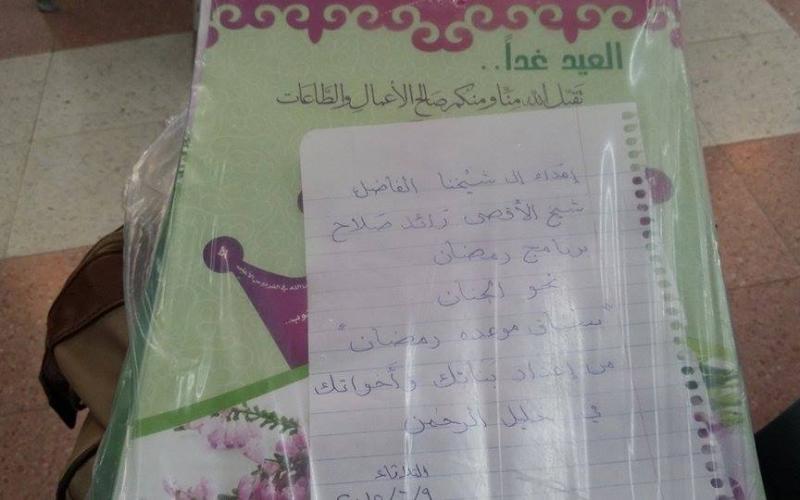 العيد غداً..
تقبّل الله منّا ومنكم صالح الأعمال والطّاعات
إهداء إلى شيخنا الفاضل
شيخ الأقصى رائد صلاح
برنامج رمضان
نحو الجنان
"سباق موعده رمضان"
من إعداد بناتك وأخواتك
في خليل الرحمن
الثلاثاء
٢٠١٥/٦/٩